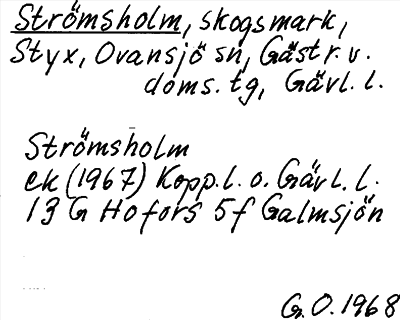 Strömsholm, skogsmark,
Styx, Ovansjö sn, Gästr. v.
doms. tg, Gävl. l.
Strömsholm
ek (1967) Kopp. l. o. Gävl. l.
13 G Hofors 5f Galmsjön
G.O. 1968